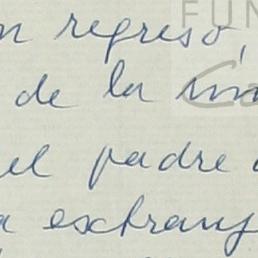 n regreso,
de la
el padre
a extranj